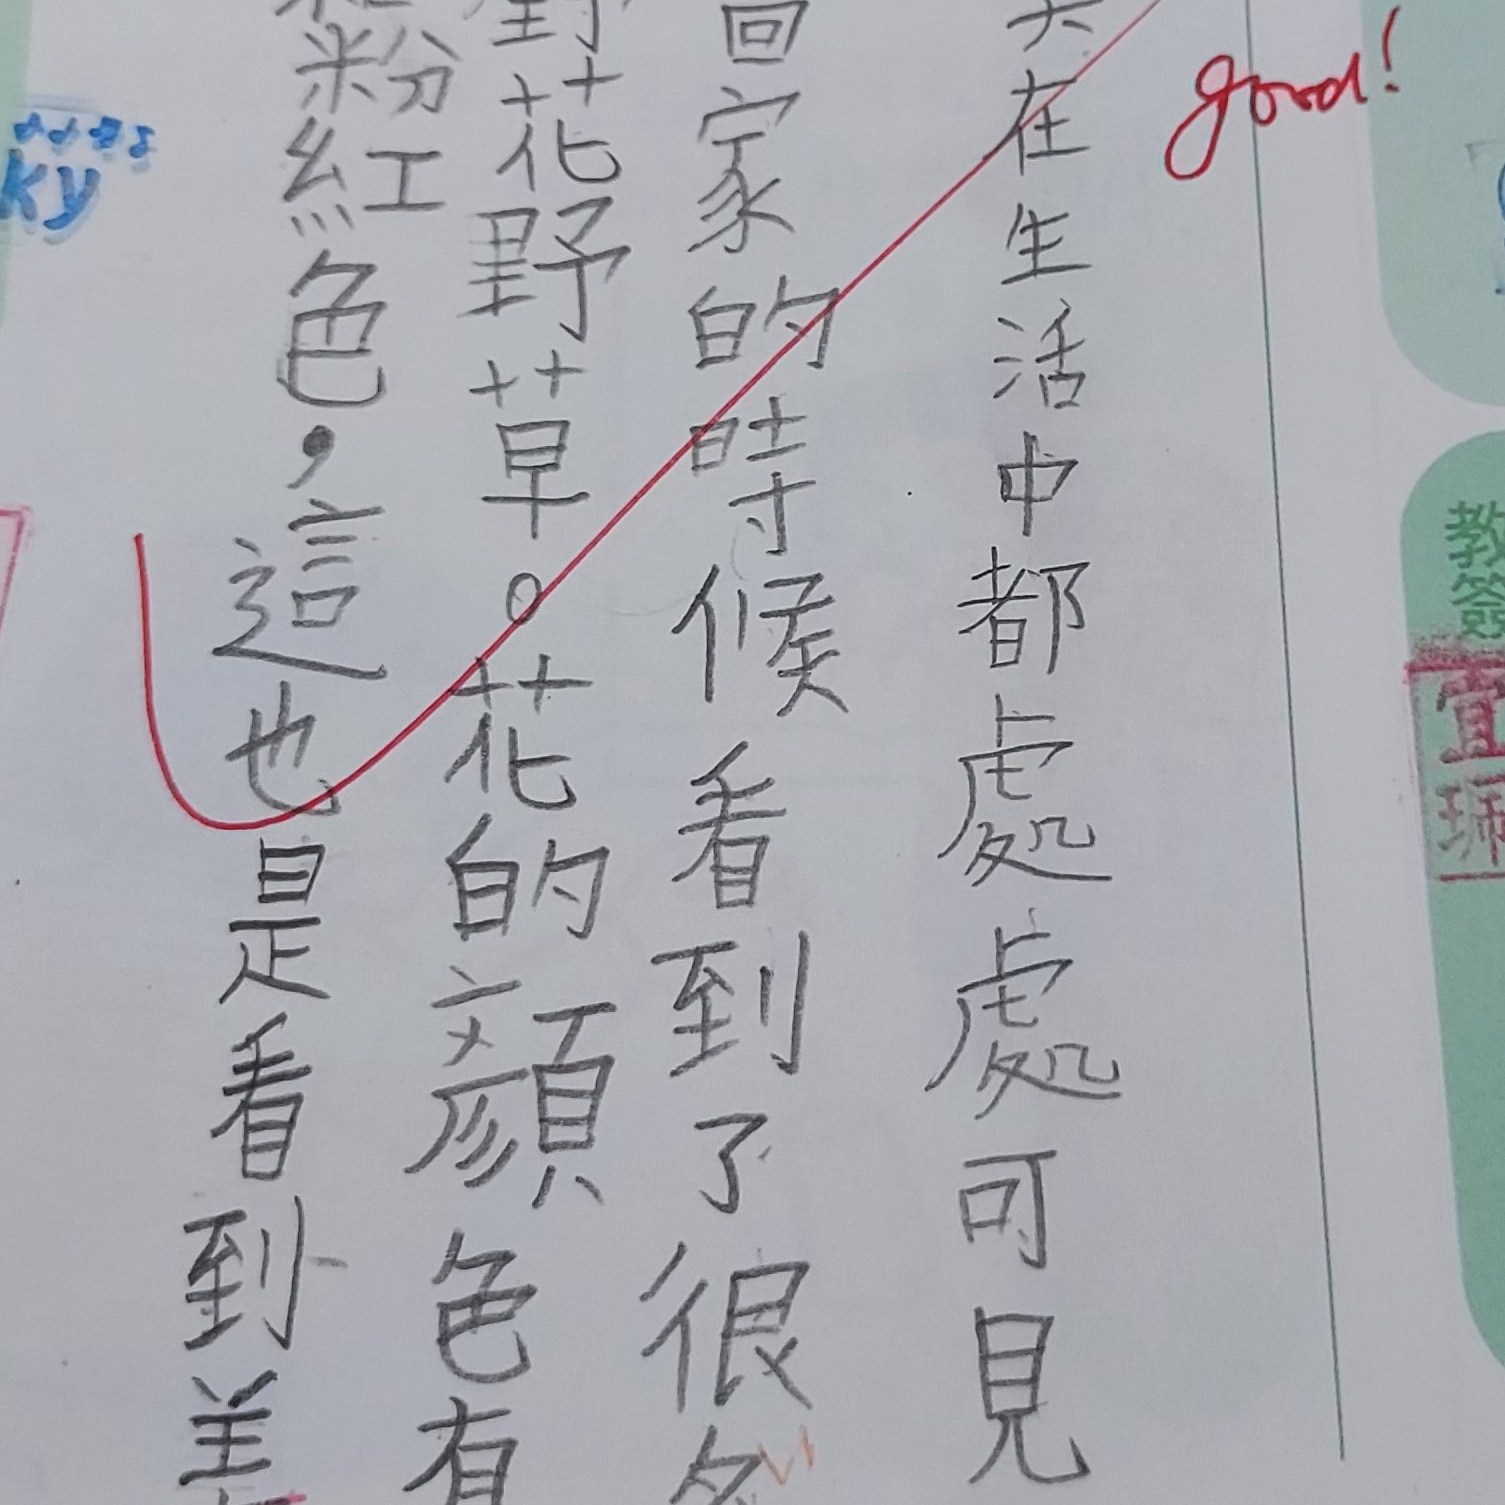 在生活中都處處可見
回家的時候看到了很多
野花野草。花的顏色有
粉紅色，這也是看到美
good!
ky
教
簽
宜